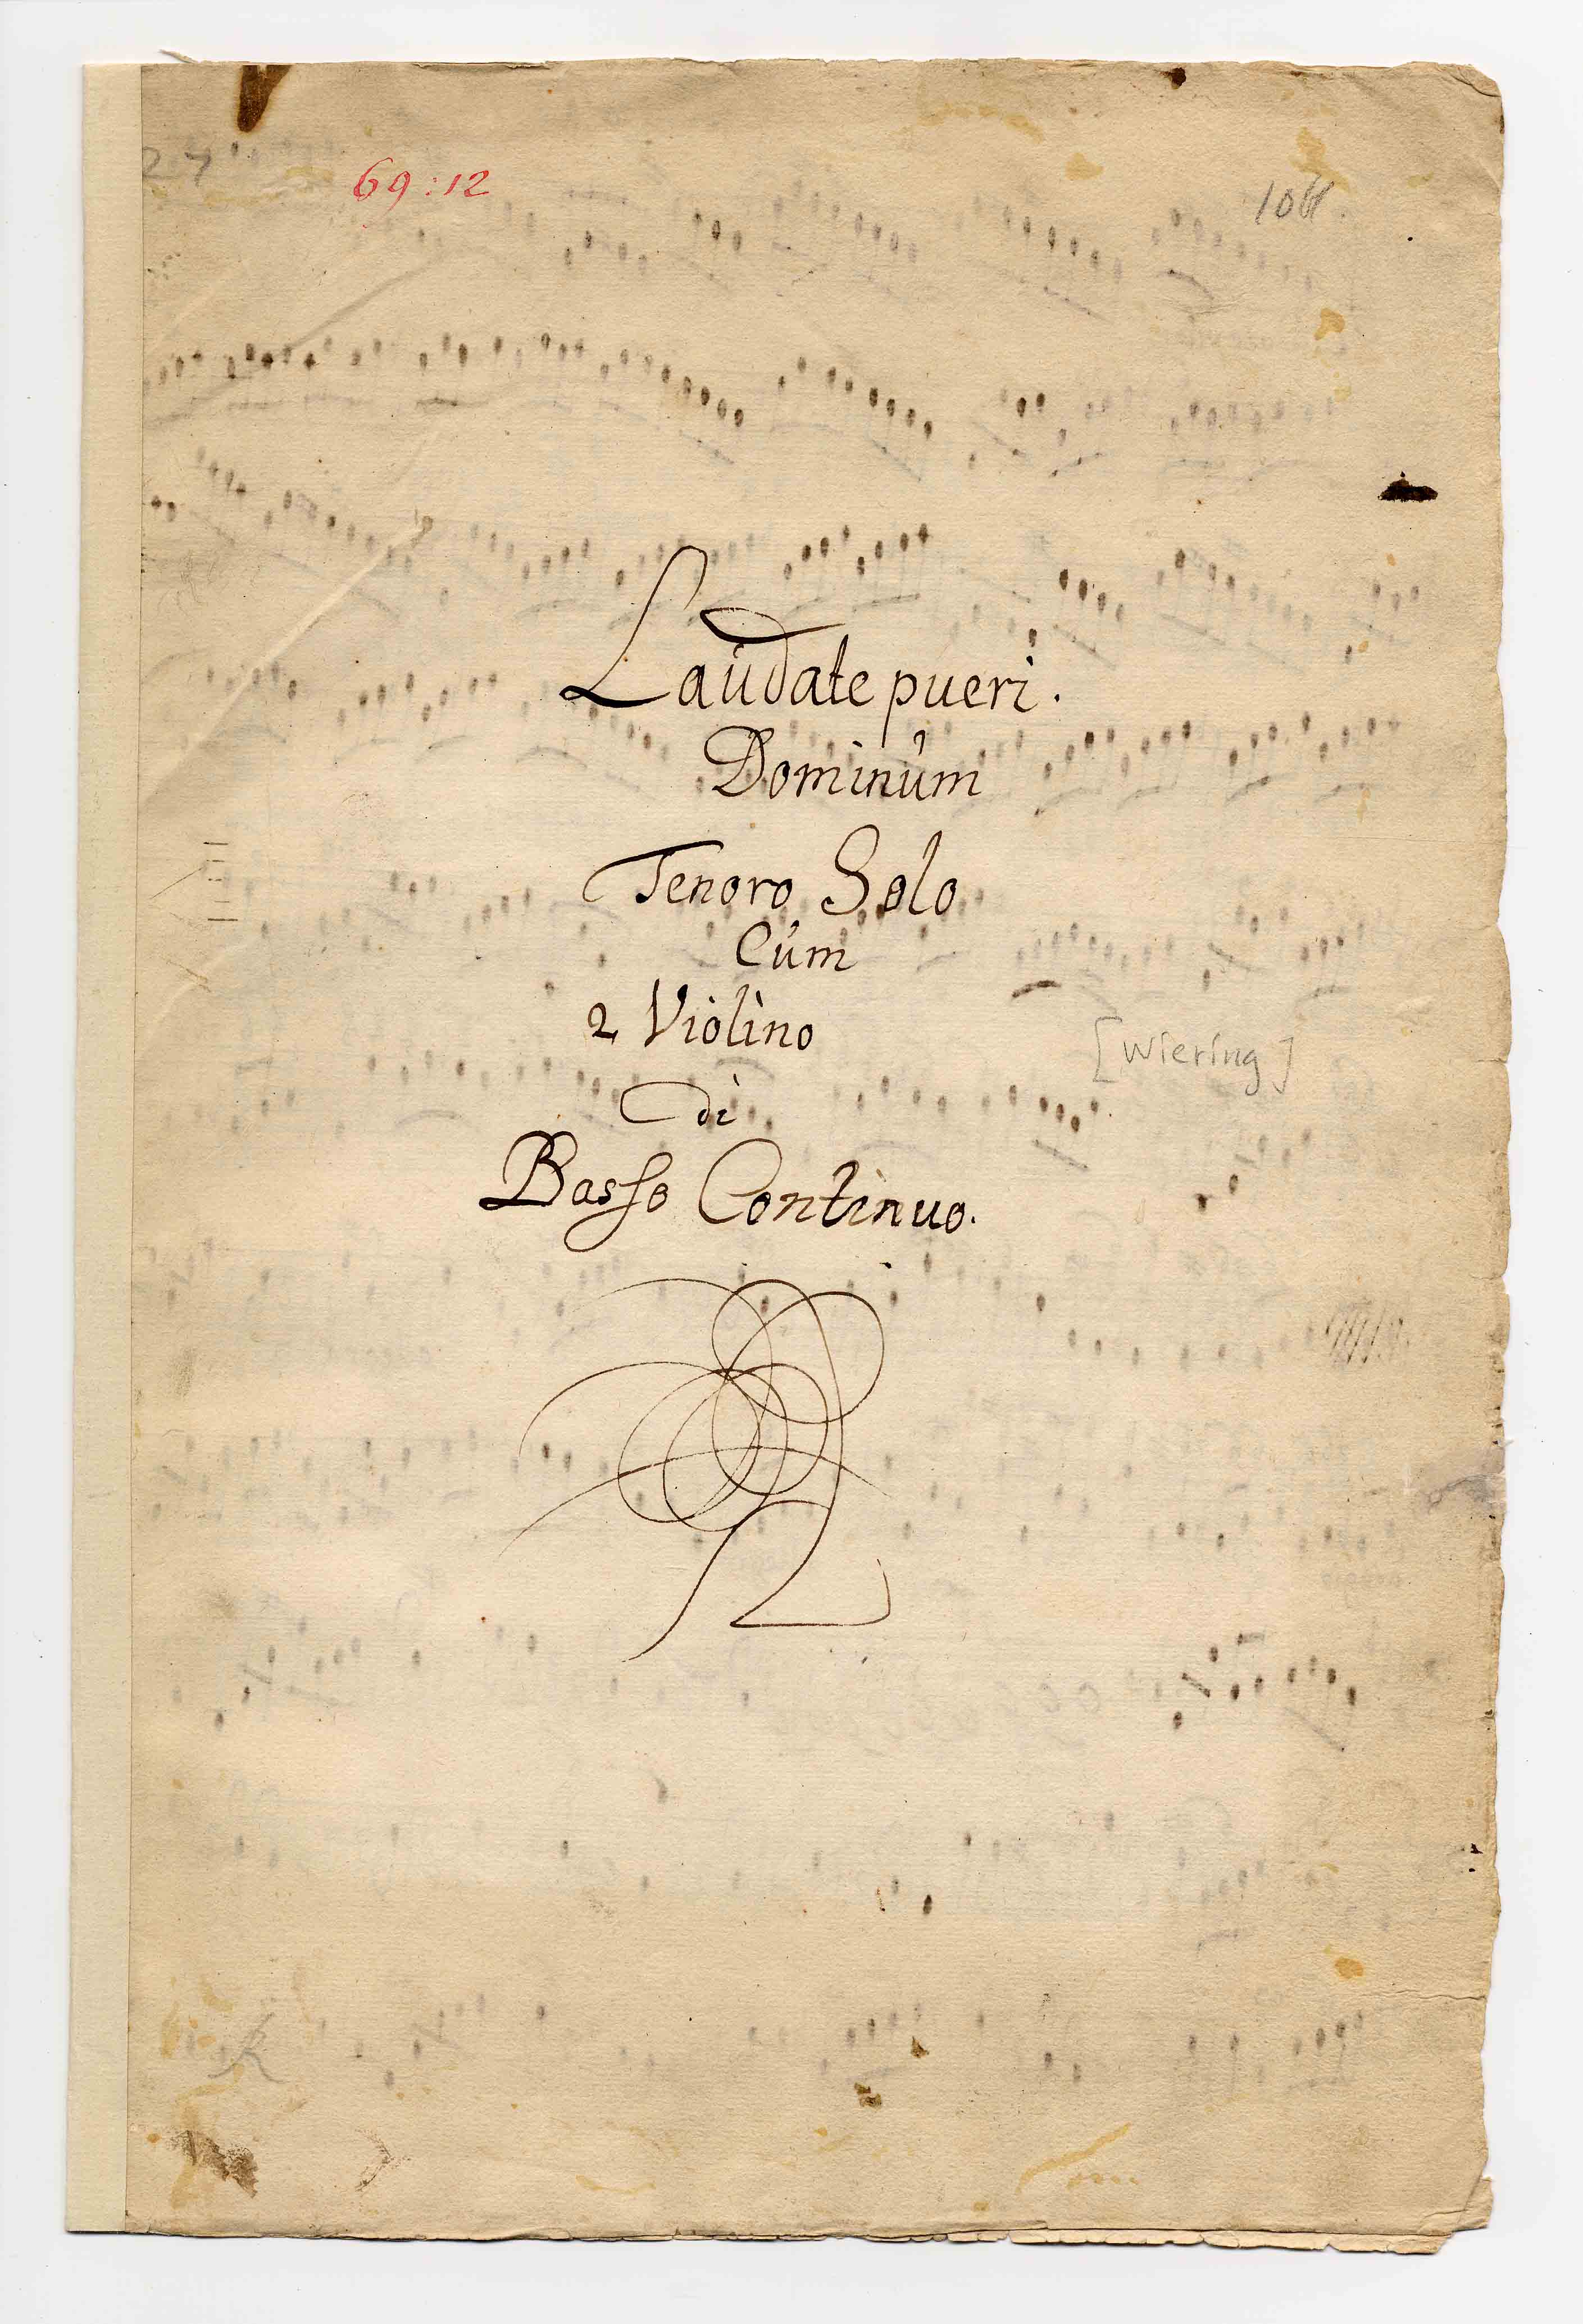 27
69:12
Laudate pueri.
Dominum
Tenoro Solo
Cum
2 Violino
[Wiering]
di
Basso Continuo.